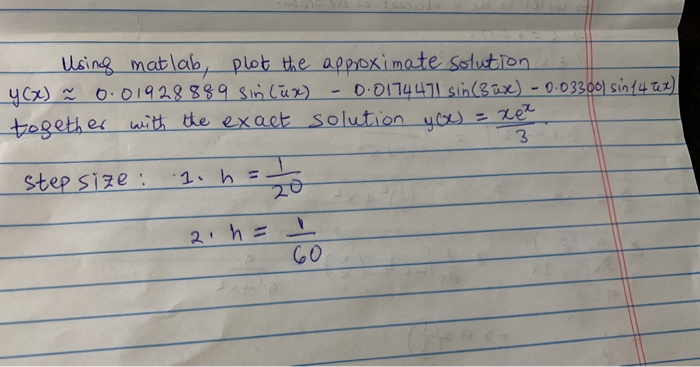 Using matlab, plot the approximate solution
y(x) ≈ 0.01928889 sin(πx) - 0.0174471 sin(3πx) - 0.033001 sin(4πx)
together with the exact solution y(x) = xeˣ/3.
step size: 1. h = 1/20
2. h = 1/60